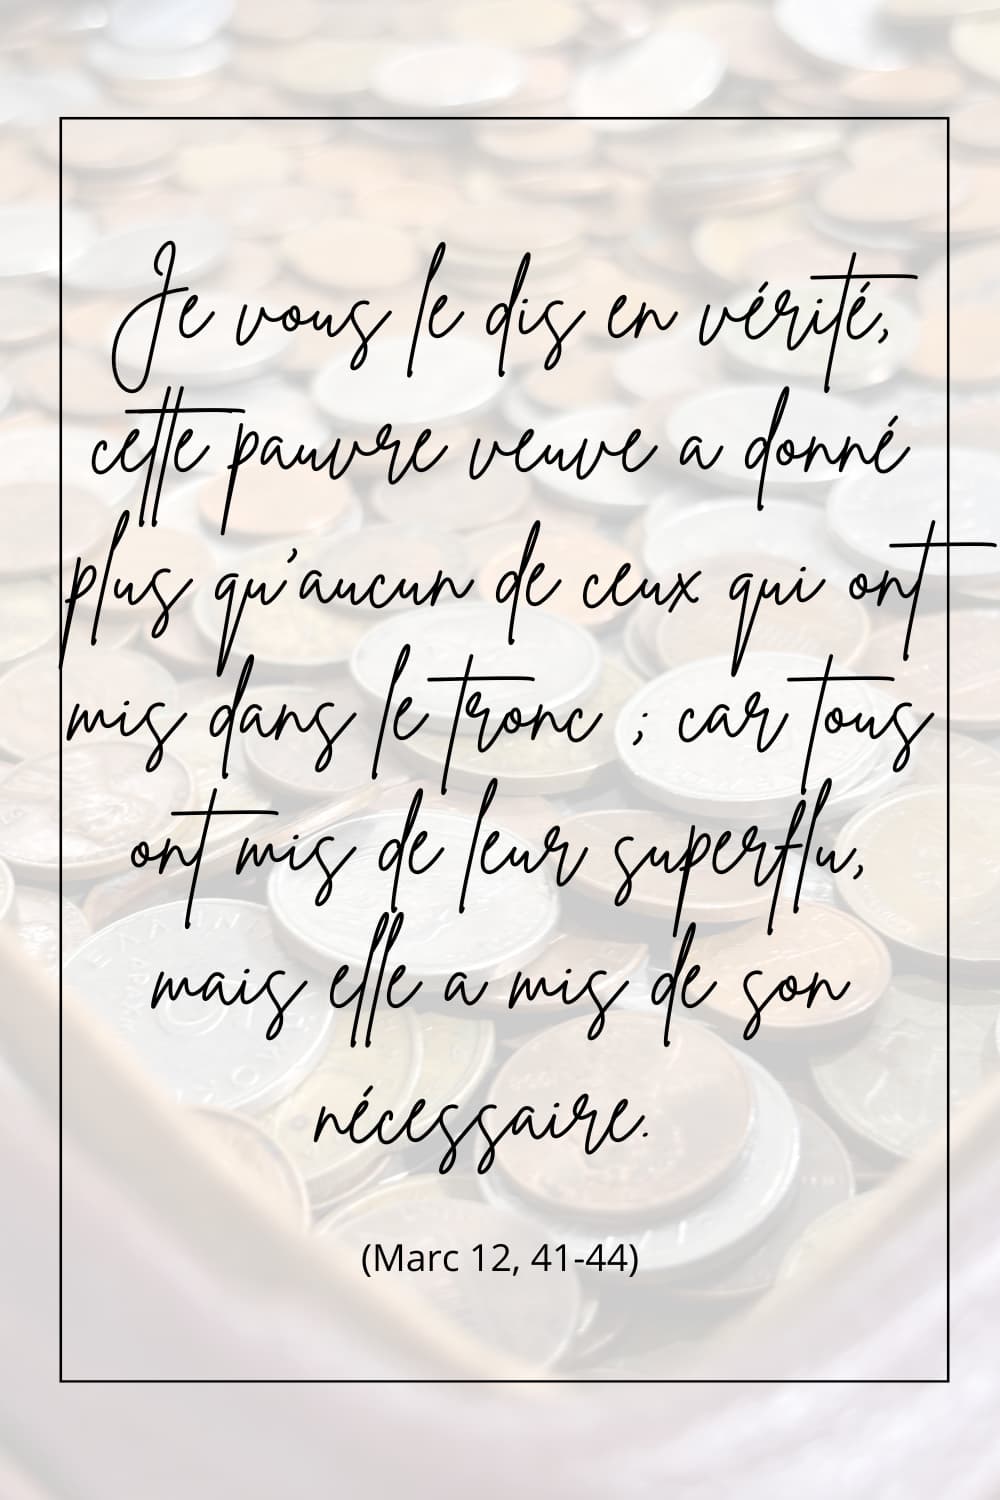 Je vous le dis en vérité,
cette pauvre veuve a donné
plus qu'aucun de ceux qui ont
mis dans le tronc ; car tous
ont mis de leur superflu,
mais elle a mis de son
nécessaire.
(Marc 12, 41-44)